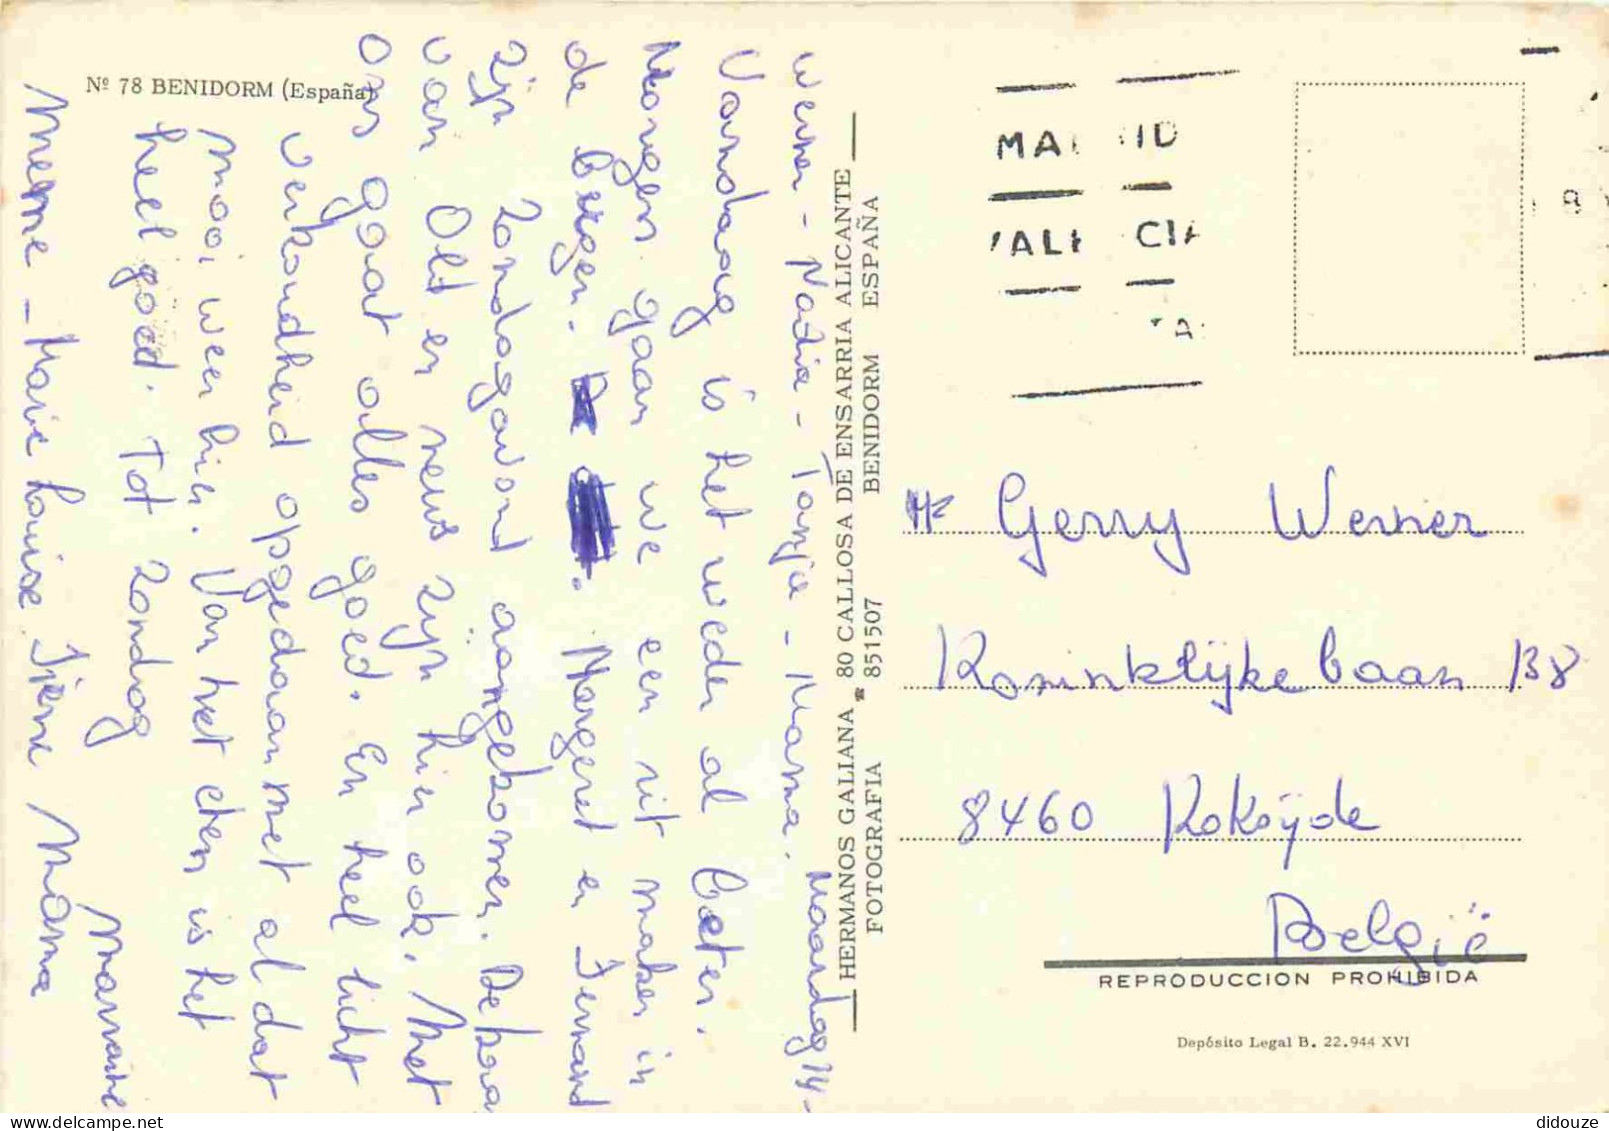 Nº 78 BENIDORM (España)
Werner - Nadia - Tanja - Mama. Maandag 14-
Vandaag is het weder al beter.
Morgen gaan we een uit maken in
de bergen. Margeret en Fernand
zijn zondagavond aangekomen. De
van Olt en news zijn hier ook. Met
ons gaat alles goed. En heel licht
verkoudheid opgedaan met al dat
mooi weer hier. Van het eten is het
heel goed. Tot zondag
Meme - Marie Louise Irène Mama
HERMANOS GALIANA 80 CALLOSA DE ENSARRIA ALICANTE
FOTOGRAFIA 851507 BENIDORM ESPAÑA
MA ID
VAL CIA
Mr Gerry Werner
Koninklijke baan 138
8460 Koksijde
België
REPRODUCCION PROHIBIDA
Depósito Legal B. 22.944 XVI
didouze